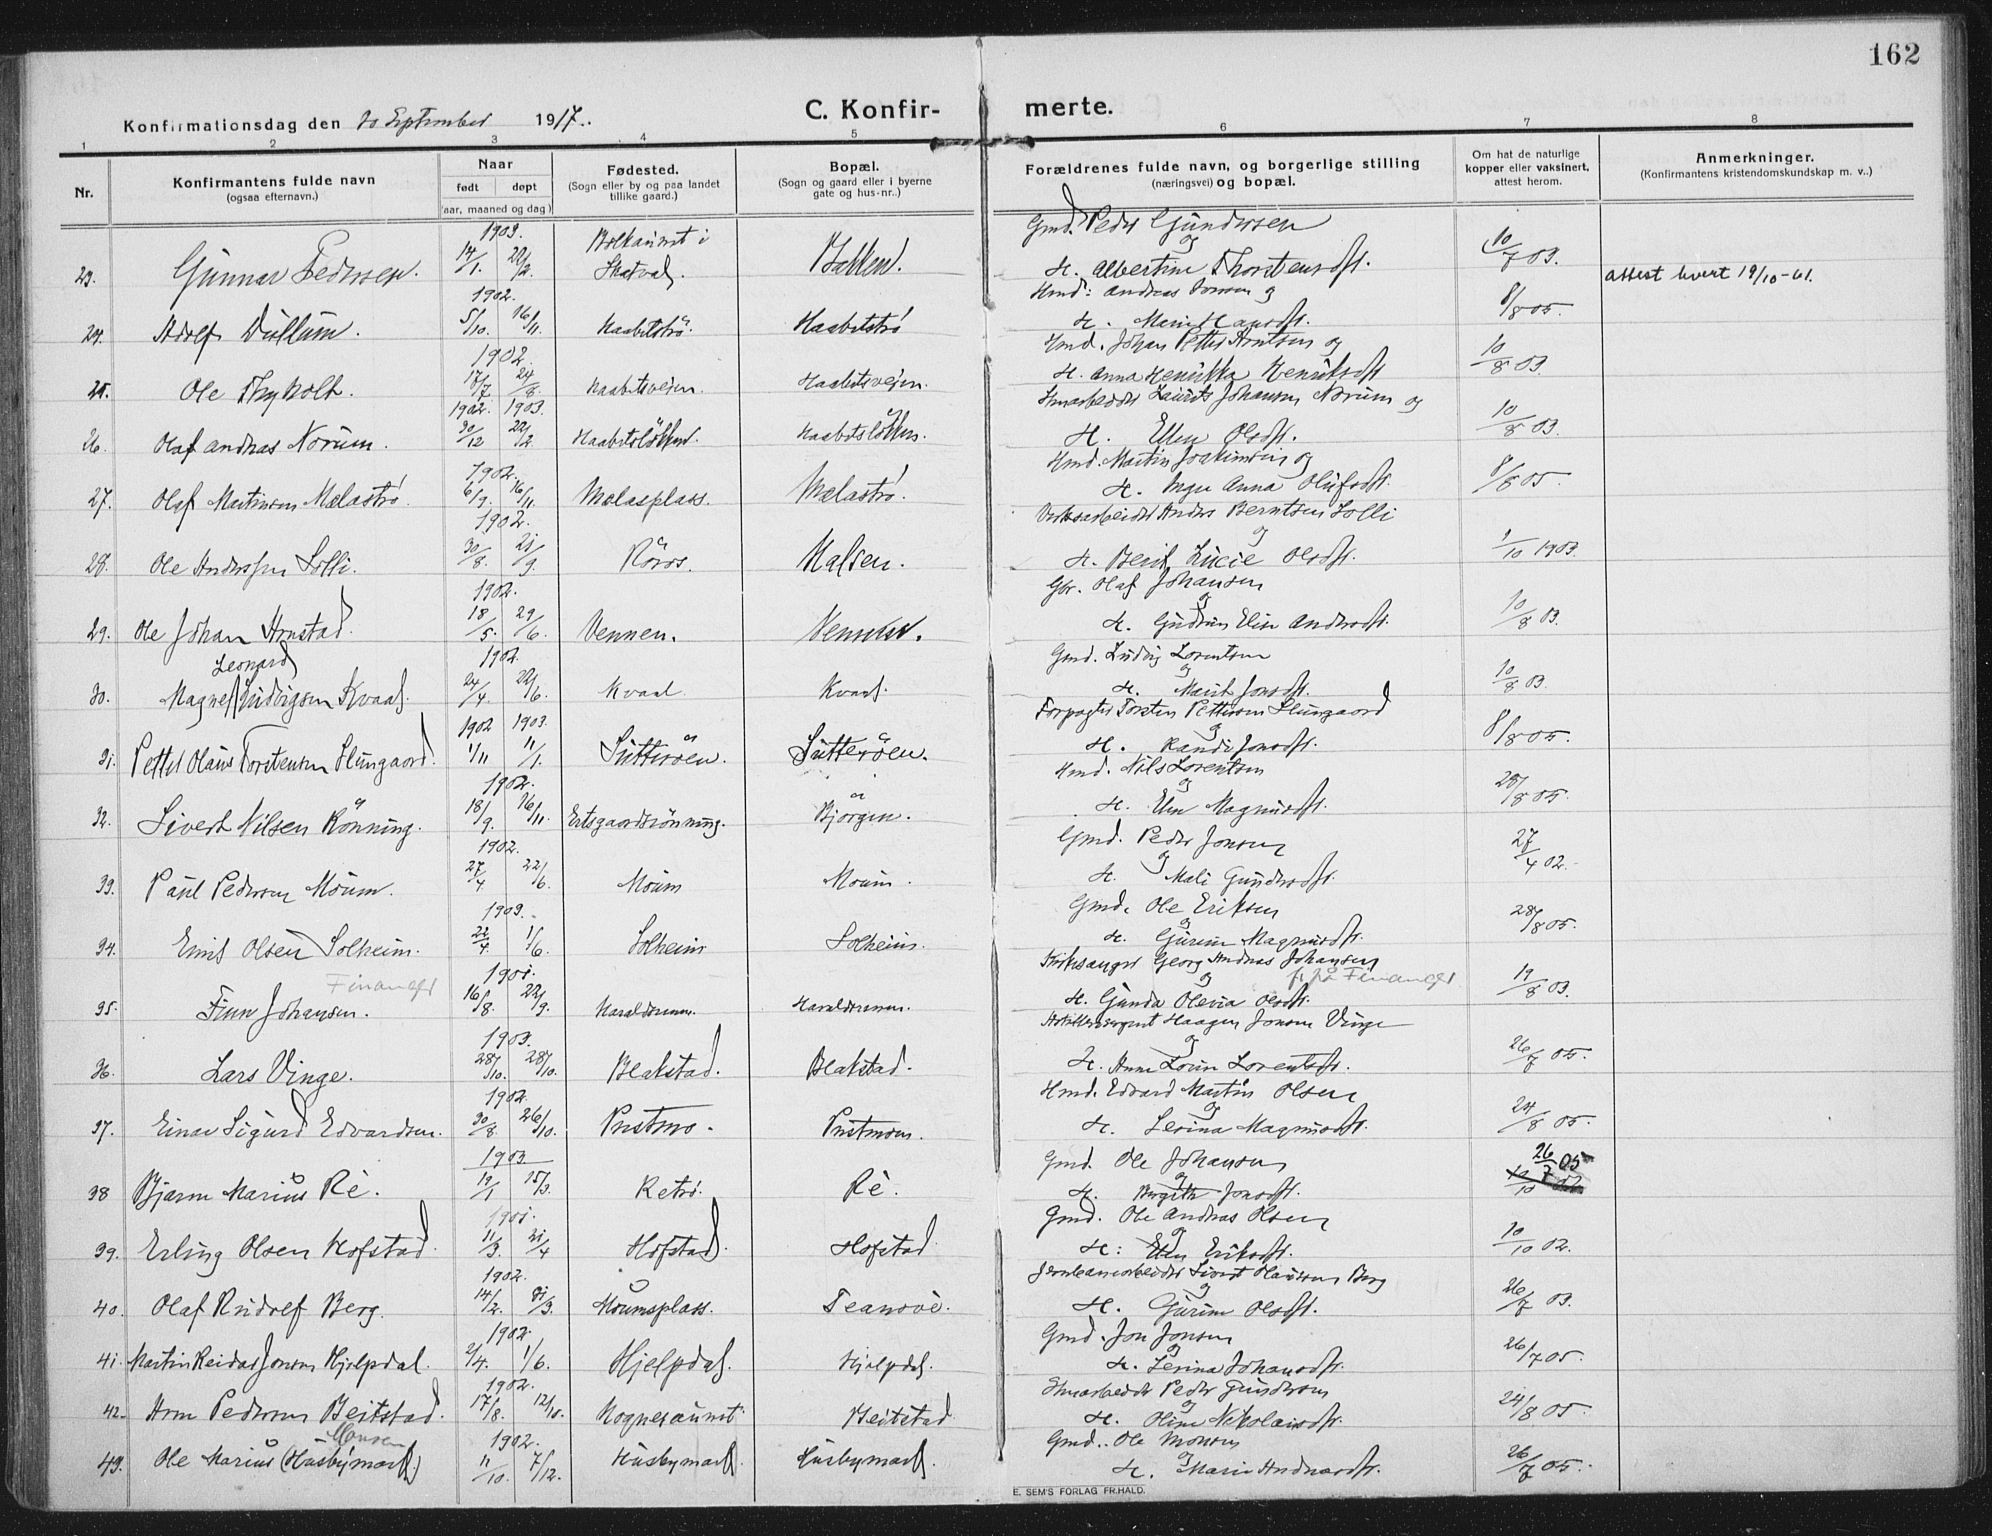 162
Konfirmationsdag den 30 September 1917.
C. Konfir- merte.
1 2 3 4 5 6 7 8
Nr.
Konfirmantens fulde navn
(ogsaa efternavn.)
Naar
født døpt
(aar, maaned og dag)
Fødested.
(Sogn eller by og paa landet
tillike gaard.)
Bopæl.
(Sogn og gaard eller i byerne
gate og hus-nr.)
Forældrenes fulde navn, og borgerlige stilling
(næringsvei) og bopæl.
Om hat de naturlige
kopper eller vaksinert,
attest herom.
Anmerkninger.
(Konfirmantens kristendomskundskap m. v..)
1903. Gmd. Peder Gundersen
og
23. Gunnar Pedersen. 14/1. 22/2. Skatval. H. Albertine Thorstensdtr. 10/7 03. attest levert 19/10-61.
1902. Hmd: Andreas og
24. Adolf Dullum. 5/10. 16/11. Haabetstrø. Haabetstrø H. 8/8 05.
1902. Hmd. Johan Petter Arntsen og
25. Ole Thyholt. 17/7 24/8. Haabetsveien. Haabetsveien. H. Anna Henrikka Henriksdtr 10/8 03.
1902. 1903. Laurits Johansen Norum og
26. Olaf Andreas Norum. 30/12 22/2 Haabetsløkken. Haabetsløkken. H. Ellen Olsdtr. 10/8 03.
1902. Hmd. Martin Joakimsen og
27. Olaf Martinsen Mælastrø. 6/9. 16/11. Mælasplass. Mælastrø. H. Inger Anna Olufsdtr. 8/8 05.
1902. Anders Berntsen Lolli
og
28. Ole Andersen Lolli. 30/8. 21/9. Røros. Malsen. H. Berit Lucie Olsdtr. 1/10 1903.
1902. Gbr. Olaf Johansen
og
29. Ole Johan Arnstad. 18/5. 29/6. Vennen. Vennen. H. Gudrun Elise Andersdtr. 10/8 03.
Leonard 1902. Gmd. Ludvig Lorentsen
og
30. Magnes Ludvigsen Kvaal. 24/4. 22/6. Kvaal. Kvaal. H. Marit Jonsdtr. 10/8 03.
1902 1903. Forpagter Torsten Pettersen Slungaard
og
31. Petter Olaus Torstensen Slungaard. 1/11 11/1. Sutterøen. Sutterøen. H. Randi Jonsdtr. 8/8 05.
1902. Hmd. Nils Lorentsen
og
32. Sivert Nilsen Rønning. 18/9. 16/11. Ertsgaardsrønning. Bjørgen. H. Elen Magnusdtr. 28/8 05.
1902. Gmd. Peder Jonsen
og
33. Paul Pedersen Moum. 27/4 22/6. Moum Moum. H. Mali Gundersdtr. 27/4 02.
1903. Gmd. Ole Eriksen
og
34. Emil Olsen Solheim. 22/4 1/6. Solheim Solheim. H. Gurine Magnusdtr. 28/8 05.
1901. Kirkesanger Georg Andreas Johansen
og
35. Finn Johansen. 16/8. 22/9. Haraldreinen. Haraldreinen. H. Gunda Olevia Olsdtr. 19/8 03.
1903. Haagen Jonsen Vinge
og
36. Lars Vinge. 28/10. 28/10. Blakstad. Blakstad. H. Anne Lovise Lorentsdtr. 26/7 05.
1902. Hmd. Edvard Martin Olsen
og
37. Einar Sigurd Edvardsen. 30/8. 26/10. Prestmo. Prestmoen. H. Serina Magnusdtr. 24/8 05.
1903 Gmd. Ole Johansen
og
38 Bjarne Marius Rè. 19/1 15/3. Retrø. Rè. H. Birgitte Jonsdtr. 26/7 05
1901. Gmd. Ole Andreas Olsen
og
39. Erling Olsen Hofstad. 11/3. 21/4 Hofstad. Hofstad H: Elen Eriksdtr. 10/10 02.
1902. Jernbanearbeider Sivert Olaussen Berg
og
40. Olaf Rudolf Berg. 14/2. 31/3. Moumsplass. H. Gurine Olsdtr. 26/7 03.
1902. Gmd. Jon Jonsen
og
41. Martin Reidar Jonsen Hjelpdal. 2/4. 1/6. Hjelpdal. Hjelpdal. H. Serina Johansdtr. 26/7 05.
1902. Peder Gundersen
og
42. Arne Pedersen Beitstad. 17/8. 12/10. Beitstad H. Oline Nikolaisdtr. 24/8 05.
Monsen 1902. Gmd. Ole Monsen
og
43. Ole Marius (Husbymark) 11/10. 7/12. Husbymark. Husbymark. H. Marie Andreasdtr. 26/7 05.
E. SEM'S FORLAG FR.HALD.